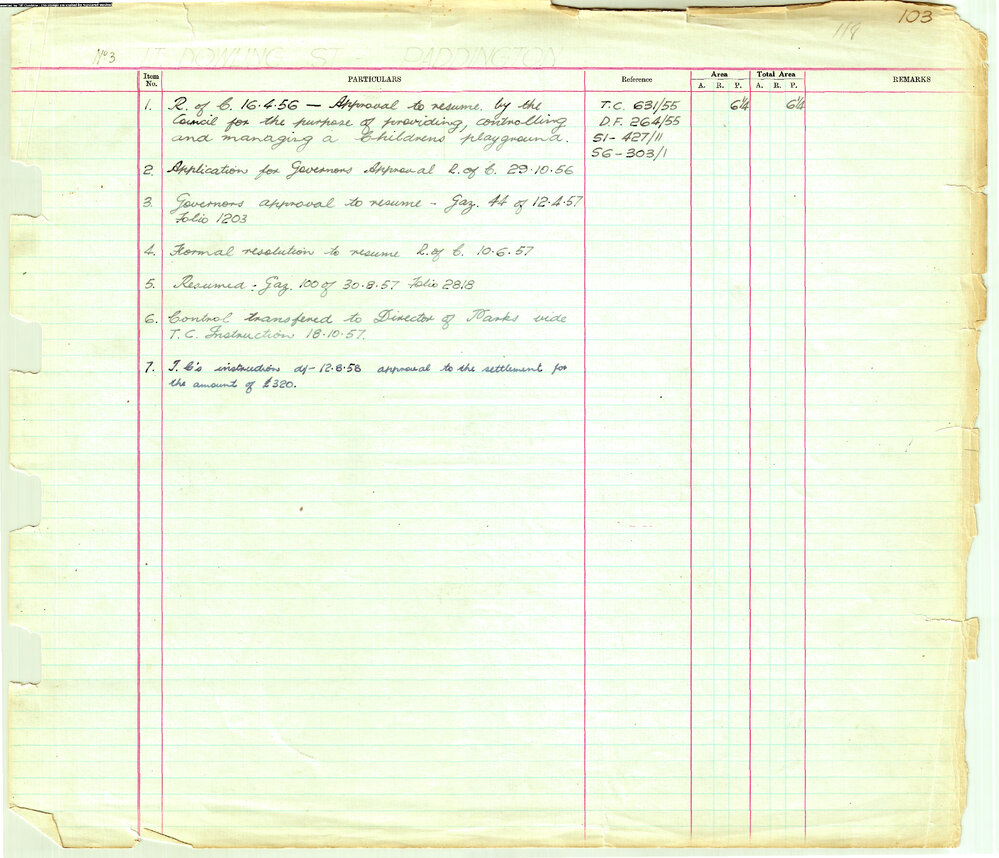 103
119
No 3 LT DOWLING ST - PADDINGTON
Item No. PARTICULARS Reference Area Total Area REMARKS
A. R. P. A. R. P.
1. R. of C. 16.4.56 — Approval to resume by the T.C. 631/55 6¼ 6¼
Council for the purpose of providing, controlling D.F. 264/55
and managing a Childrens playground. 51-427/11
56-303/1
2. Application for Governors Approval R. of C. 29.10.56
3. Governors approval to resume - Gaz. 44 of 12.4.57
Folio 1203
4. Formal resolution to resume R. of C. 10.6.57
5. Resumed - Gaz. 100 of 30.8.57 Folio 2818
6. Control transfered to Director of Parks vide
T.C. Instruction 18.10.57.
7. T.C's instruction of 12.8.58 approval to the settlement for
the amount of £320.